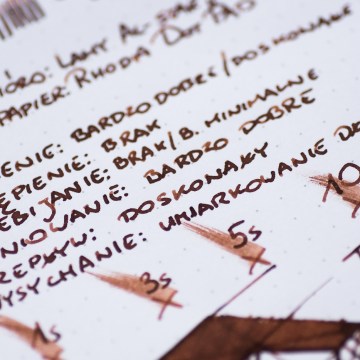 IÓRO: LAMY AL-STAR
PAPIER: RHODIA DOTPAD
ENIE: BARDZO DOBRE/DOSKONAŁE
EPIENIE: BRAK
EBIJANIE: BRAK/B. MINIMALNE
NIOWANIE: BARDZO DOBRE
RZEPŁYW: DOSKONAŁY
WYSYCHANIE: UMIARKOWANIE DO
1s 3s 5s 10